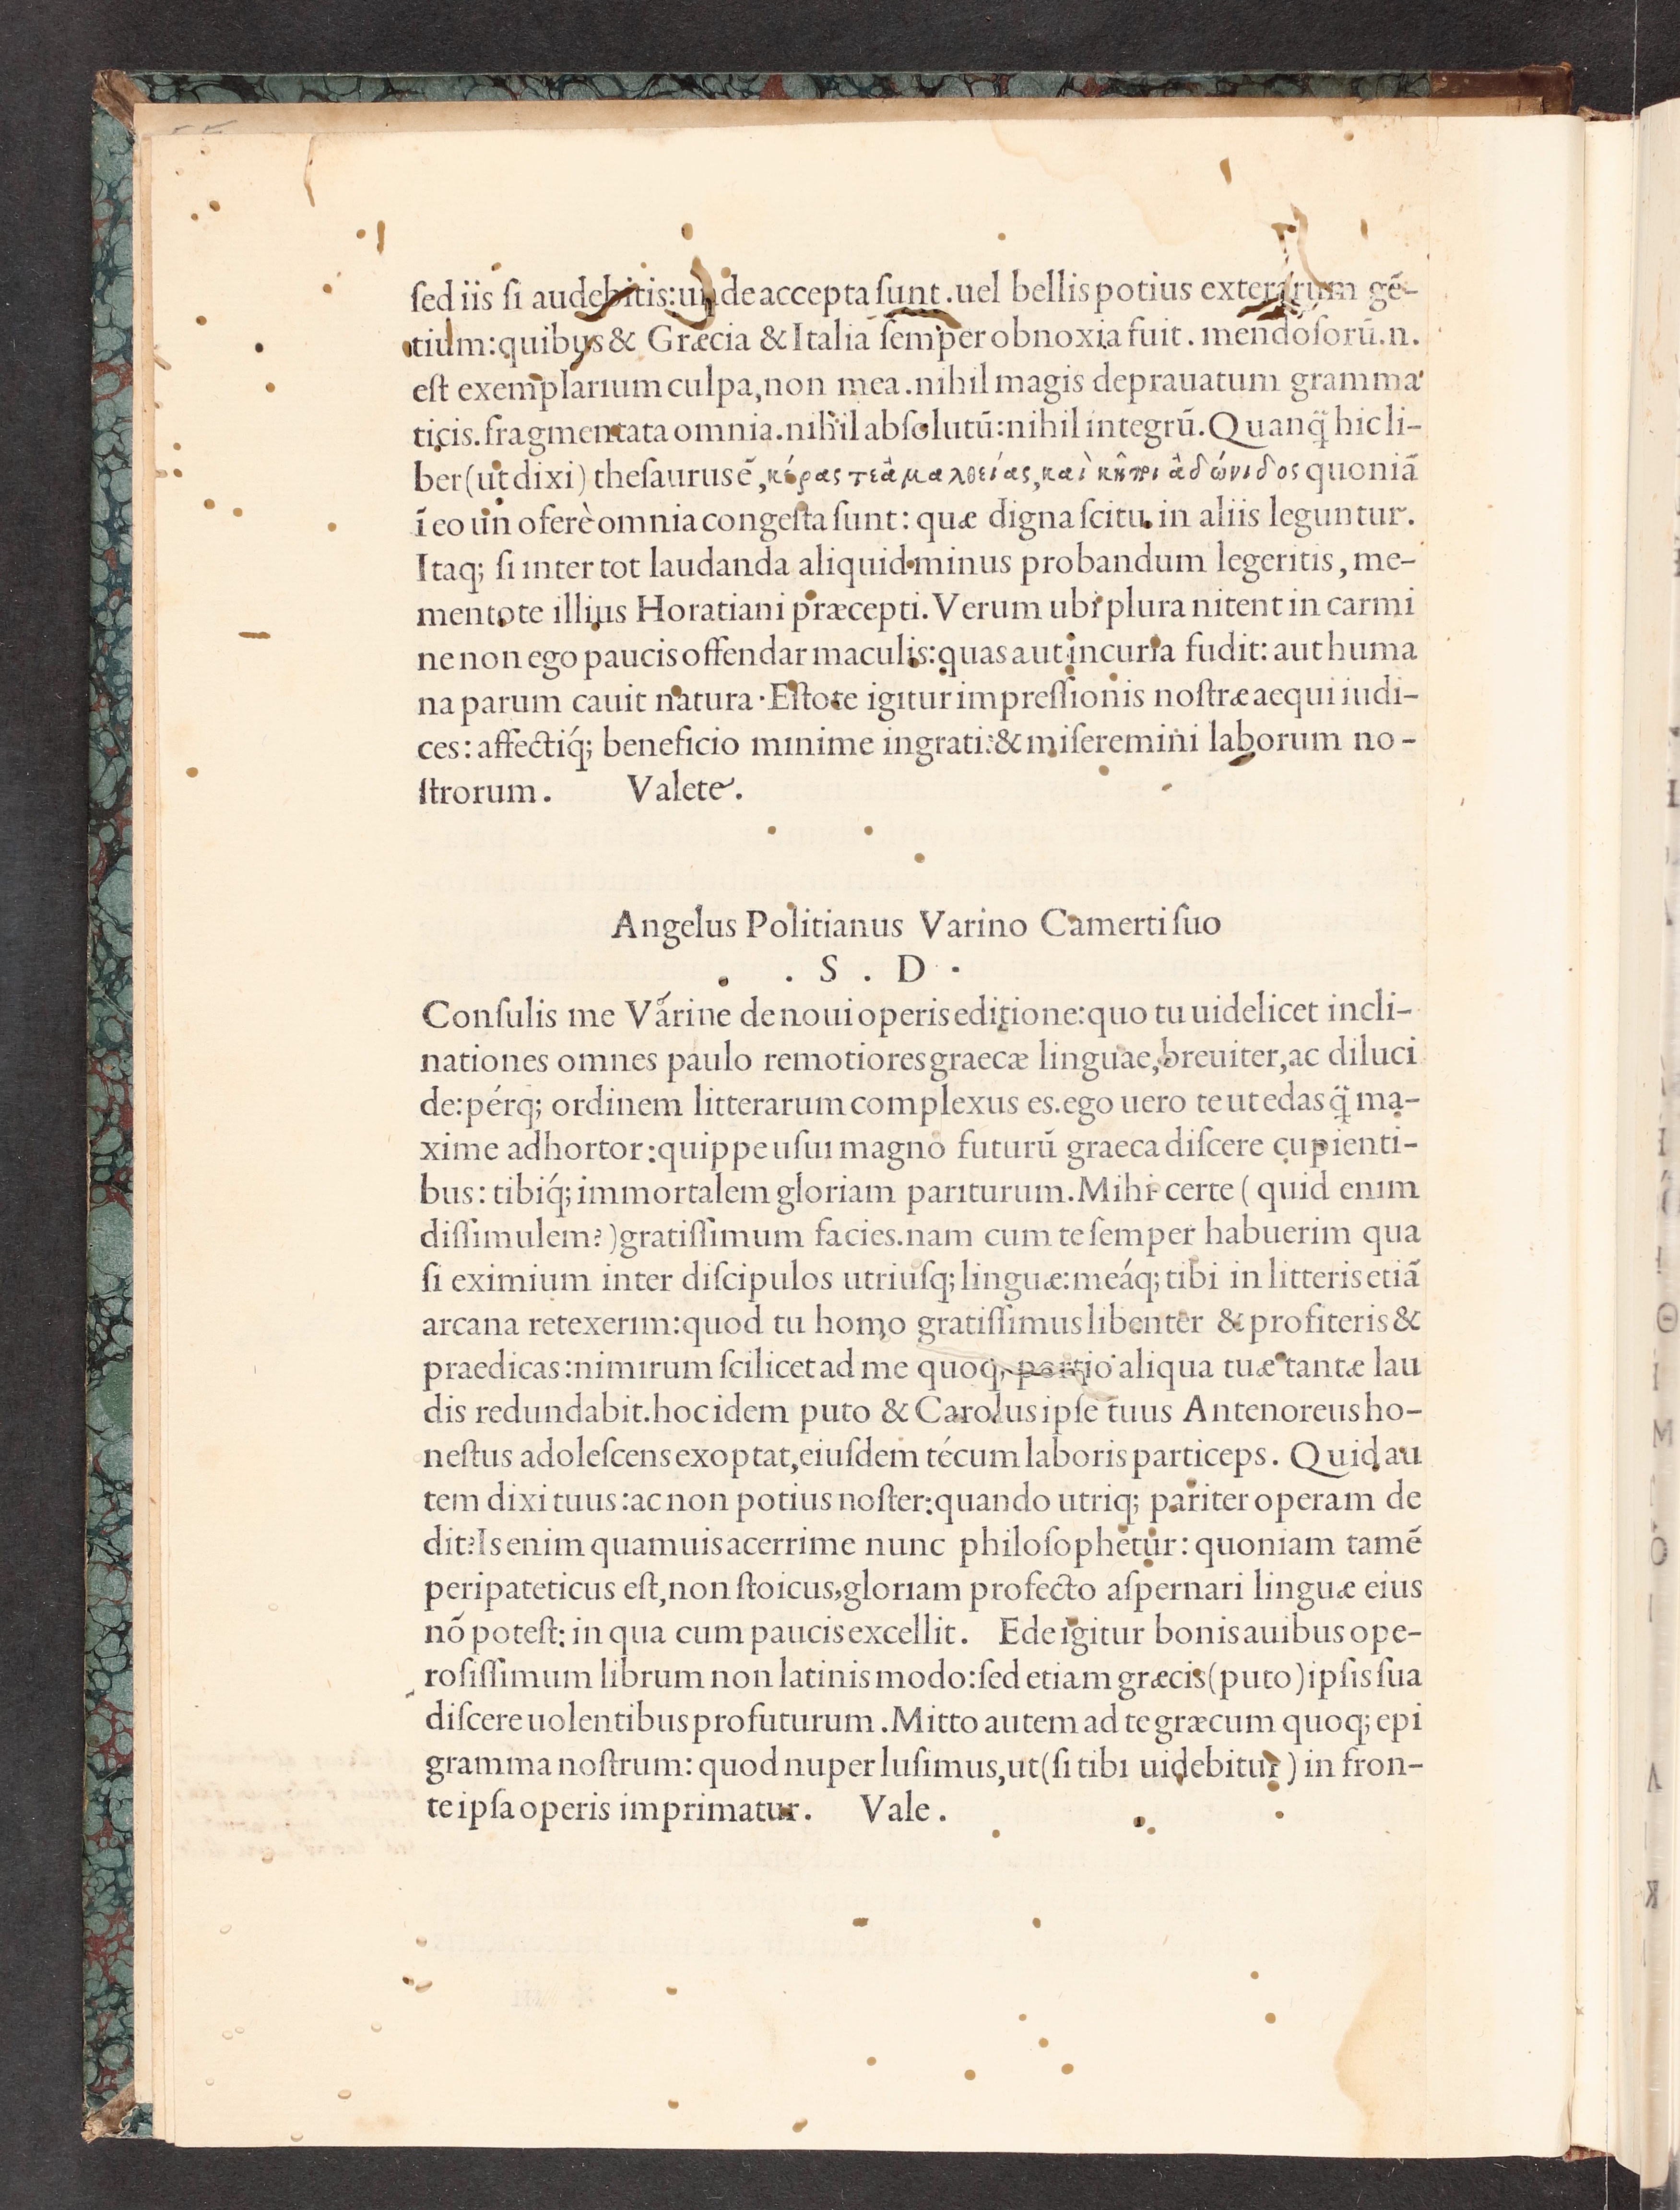 ſed iis ſi audebitis:unde accepta ſunt.uel bellis potius exterarum gē-
tium:quibus & Græcia & Italia ſemper obnoxia fuit. mendoſorū.n.
eſt exemplarium culpa,non mea.nihil magis deprauatum gramma
ticis.fragmentata omnia.nihil abſolutū:nihil integrū.Quanq̃ hic li-
ber(ut dixi) theſaurus ē,κέρας τε ἀμαλθείας,καὶ κῆποι ἀδώνιδος quoniā
ī eo uno ferè omnia congeſta ſunt: quæ digna ſcitu in aliis leguntur.
Itaq; ſi inter tot laudanda aliquid minus probandum legeritis, me-
mentote illius Horatiani præcepti. Verum ubi plura nitent in carmi
ne non ego paucis offendar maculis:quas aut incuria fudit: aut huma
na parum cauit natura. Eſtote igitur impreſſionis noſtræ aequi iudi-
ces: affectiq́; beneficio minime ingrati:& miſeremini laborum no-
ſtrorum. Valete.
Angelus Politianus Varino Camerti ſuo
. S . D .
Conſulis me Varine de noui operis editione:quo tu uidelicet incli-
nationes omnes paulo remotiores graecæ linguae,breuiter,ac diluci
de:pérq; ordinem litterarum complexus es.ego uero te ut edas q̃ ma-
xime adhortor:quippe uſui magno futurū graeca diſcere cupienti-
bus: tibiq́; immortalem gloriam pariturum.Mihi certe ( quid enim
diſſimulem?)gratiſſimum facies.nam cum te ſemper habuerim qua
ſi eximium inter diſcipulos utriuſq; linguæ:meáq; tibi in litteris etiā
arcana retexerim:quod tu homo gratiſſimus libenter & profiteris &
praedicas:nimirum ſcilicet ad me quoq; portio aliqua tuæ tantæ lau
dis redundabit.hoc idem puto & Carolus ipſe tuus Antenoreus ho-
neſtus adoleſcens exoptat,eiuſdem técum laboris particeps. Quid au
tem dixi tuus:ac non potius noſter:quando utriq; pariter operam de
dit?Is enim quamuis acerrime nunc philoſophetur: quoniam tamē
peripateticus eſt,non ſtoicus,gloriam profecto aſpernari linguæ eius
nō poteſt: in qua cum paucis excellit. Ede igitur bonis auibus ope-
roſiſſimum librum non latinis modo:ſed etiam græcis(puto)ipſis ſua
diſcere uolentibus profuturum.Mitto autem ad te græcum quoq; epi
gramma noſtrum: quod nuper luſimus,ut(ſi tibi uidebitur) in fron-
te ipſa operis imprimatur. Vale.